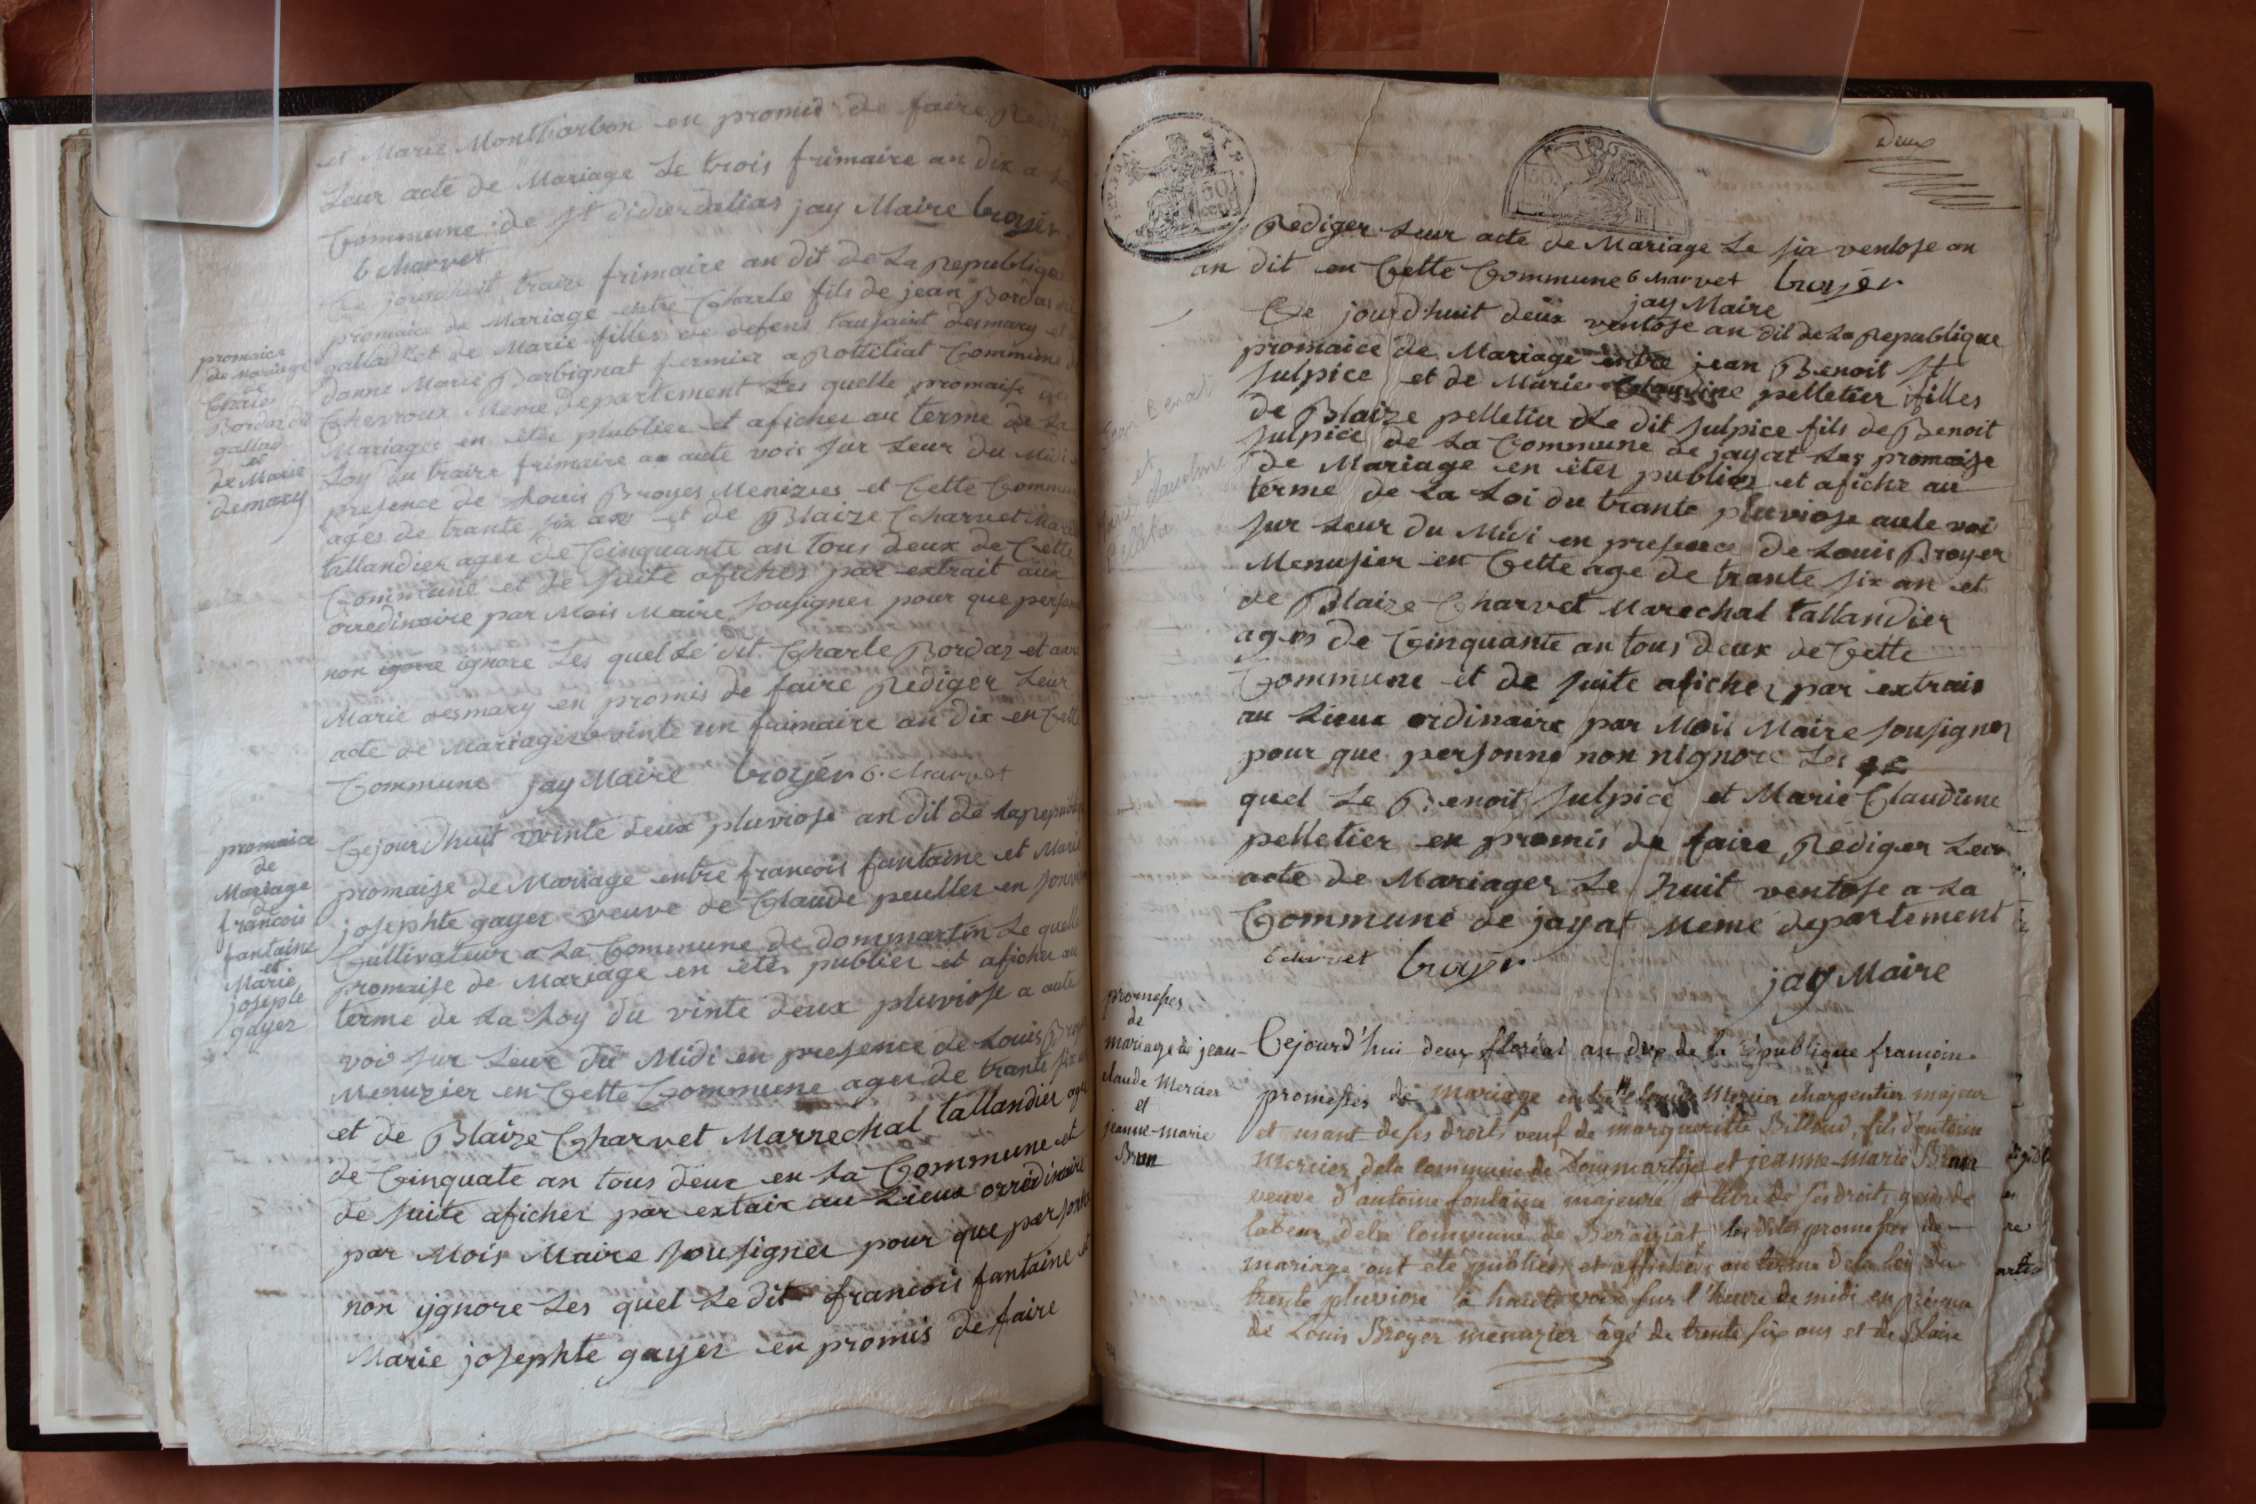 et Marie Montbarbon en promis de faire Redi
Leur acte de Mariage Le trois frimaire an dix a La
Commune de St didier dalias jay Maire broyer
b charvet
Ce jourdhuit traize frimaire an dit de La Republique
promaice de Mariage entre Charle fils de jean Bordaz dit
gallad et de Marie filles de defens taufaint desmary et
danne Marie Barbignat fermier a Rottiliat Commune de
Chevroux Meme Departement Les quelle promaise de
Mariages en étés plublier et afiches au terme de La
Loy du traize frimaire a aute voir sur Leur du Midi
presence de Louis Broyer Menizies et Cette Commune
ages de trante six ans et de Blaize Charvet Marechal
tallandier ages de Cinquante an tous deux de Cette
Commune et de suite afiches par extrait aux
orredinaire par Mois Maire sousignes pour que person
non igore ignore Les quel Le dit Charle Bordaz et ave
Marie desmary en promis de faire Rediger Leur
acte de Mariages Le vinte un frimaire an dix en Cette
Commune jay Maire broyér b. charvet
promaice
de Mariage
de
Charles
Bordaz dit
gallad
et
de Marie
demary
Cejourdhuit vinte deux pluviose an dit de La republiq
promaise de Mariage entre francois fantaine et Marie
josephte gayer veuve de Claude peulles en son viv
Cultivateur a La Commune de dommartin Le quelle
promaise de Mariage en étés publier et afiches au
terme de La Loy du vinte deux pluviose a aute
voir sur Leur du Midi en presence de Louis Broy
Menuzier en Cette Commune ages de trante six
et de Blaize Charvet Marrechal tallandier ages
de Cinquate an tous deux en La Commune et
de suite afiches par extair au Lieux orrédinaire
par Mois Maire sousignes pour que personne
non ygnore Les quel Le dit francois fantaine et
Marie josephte gayer en promis de faire
promaice
de
Mariage
de
francois
fantaine
et
Marie
josephte
gayer
Deux
Rediger Leur acte de Mariage Le six ventose an
an dit en Cette Commune b charvet broyér
jay Maire
Ce jourd'huit deux ventose an dit de La Republique
promaice de Mariage entre jean Benoit St
sulpice et de Marie Claudine pelletier filles
de Blaize pelletier Le dit sulpice fils de Benoit
sulpice de La Commune de jayat Les promaise
de Mariage en étés publies et afiche au
terme de La Loi du trante pluviose aute voi
sur Leur du Midi en presence de Louis Broyer
Menusier en Cette age de trante six an et
de Blaize Charvet Marechal tallandier
ages de Cinquante an tous deux de Cette
Commune et de suite afiches par extrait
au Lieux ordinaire par Mois Maire sousignes
pour que personne non nignore Les
quel Le Benoit sulpice et Marie Claudine
pelletier en promis de faire Rediger Leur
acte de Mariages Le huit ventose a La
Commune de jayat Meme departement
b charvet broyér
jay Maire
jean Benoit
et
Marie Claudine
Pelletier
promesses
de
mariage de jean-
claude Mercier
et
jeanne-marie
Bran
Cejourd'hui deux floréal an dix de la république françoise
promesses de mariage entre jn claude Mercier charpentier majeur
et usant de ses droits veuf de marguerite Billoud, fils d'antoine
mercier, dela commune de Dommartin et jeanne-marie Bran
veuve d'antoine fontaine majeure et libre de ses droits, gens de
labeur dela commune de Béréziat les dites promesses de
mariage ont été publiées et affichées au terme de la loi du
trente pluviose à haute voix sur l'heure de midi en présence
de Louis Broyer menuzier âgé de trente six ans et de Blaise